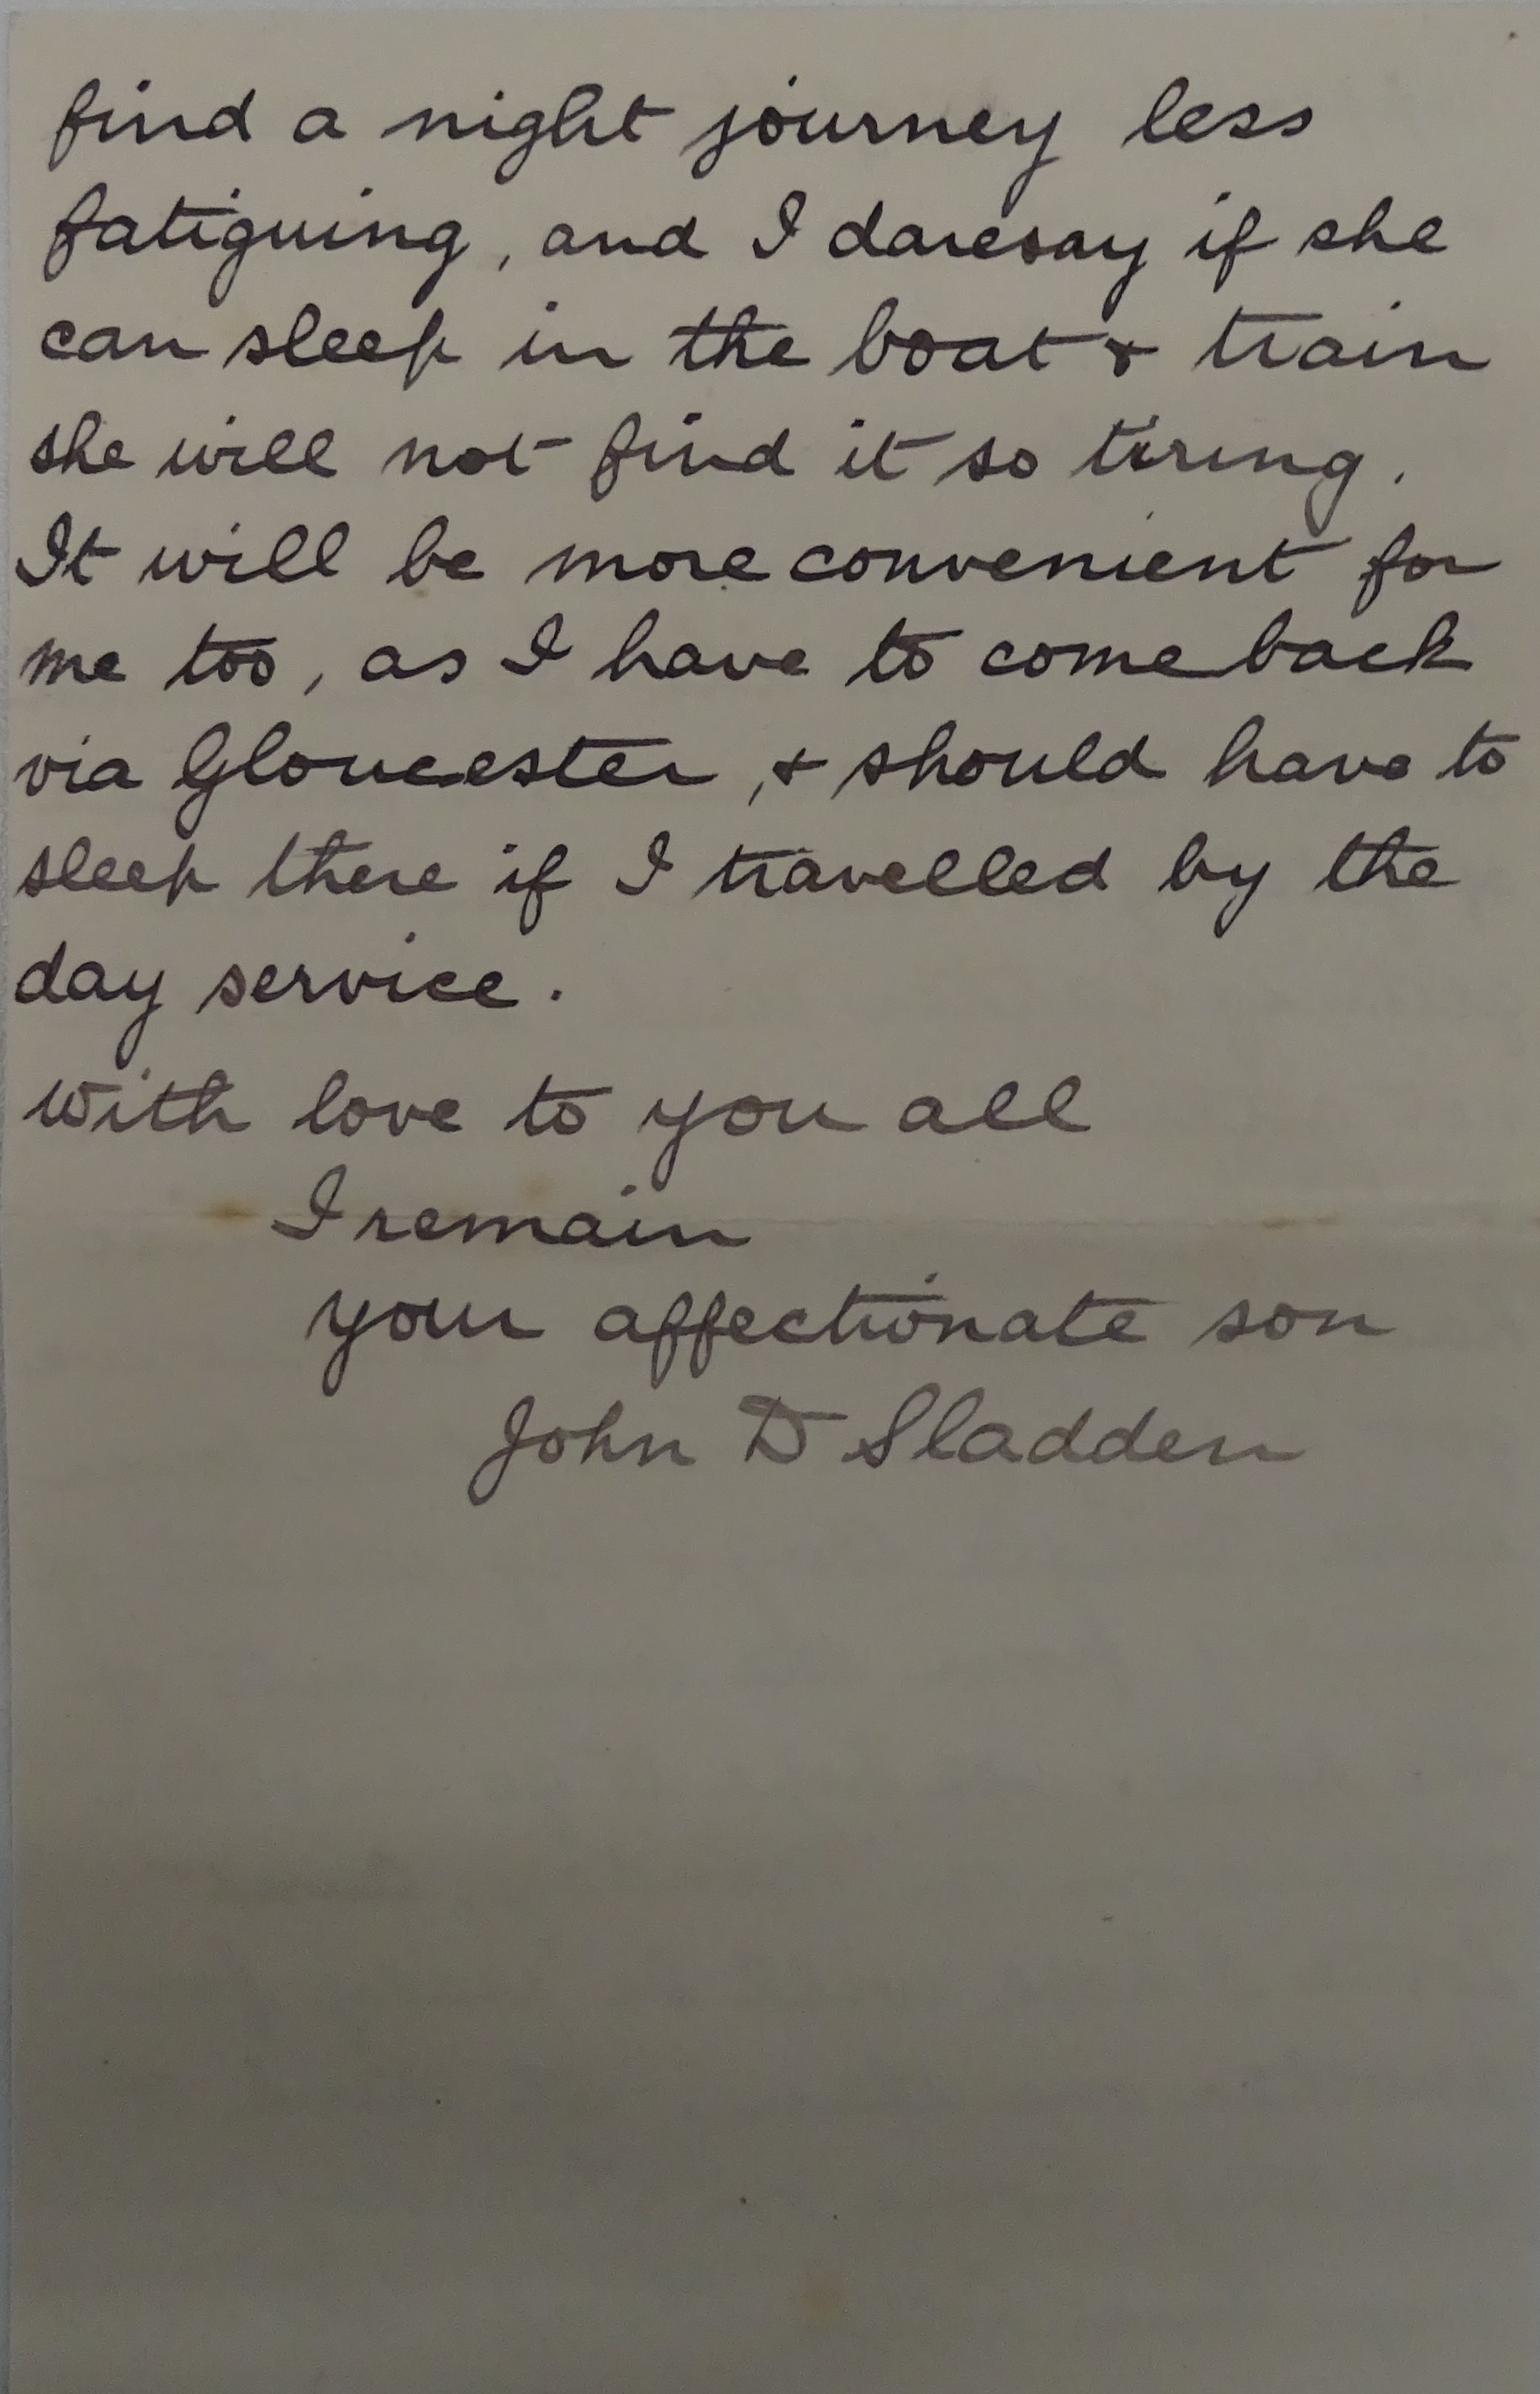 find a night journey less
fatiguing, and I daresay if she
can sleep in the boat & train
she will not find it so tiring.
It will be more convenient for
me too, as I have to come back
via Gloucester, & should have to
sleep there if I travelled by the
day service.
With love to you all
I remain
your affectionate son
John D Sladden